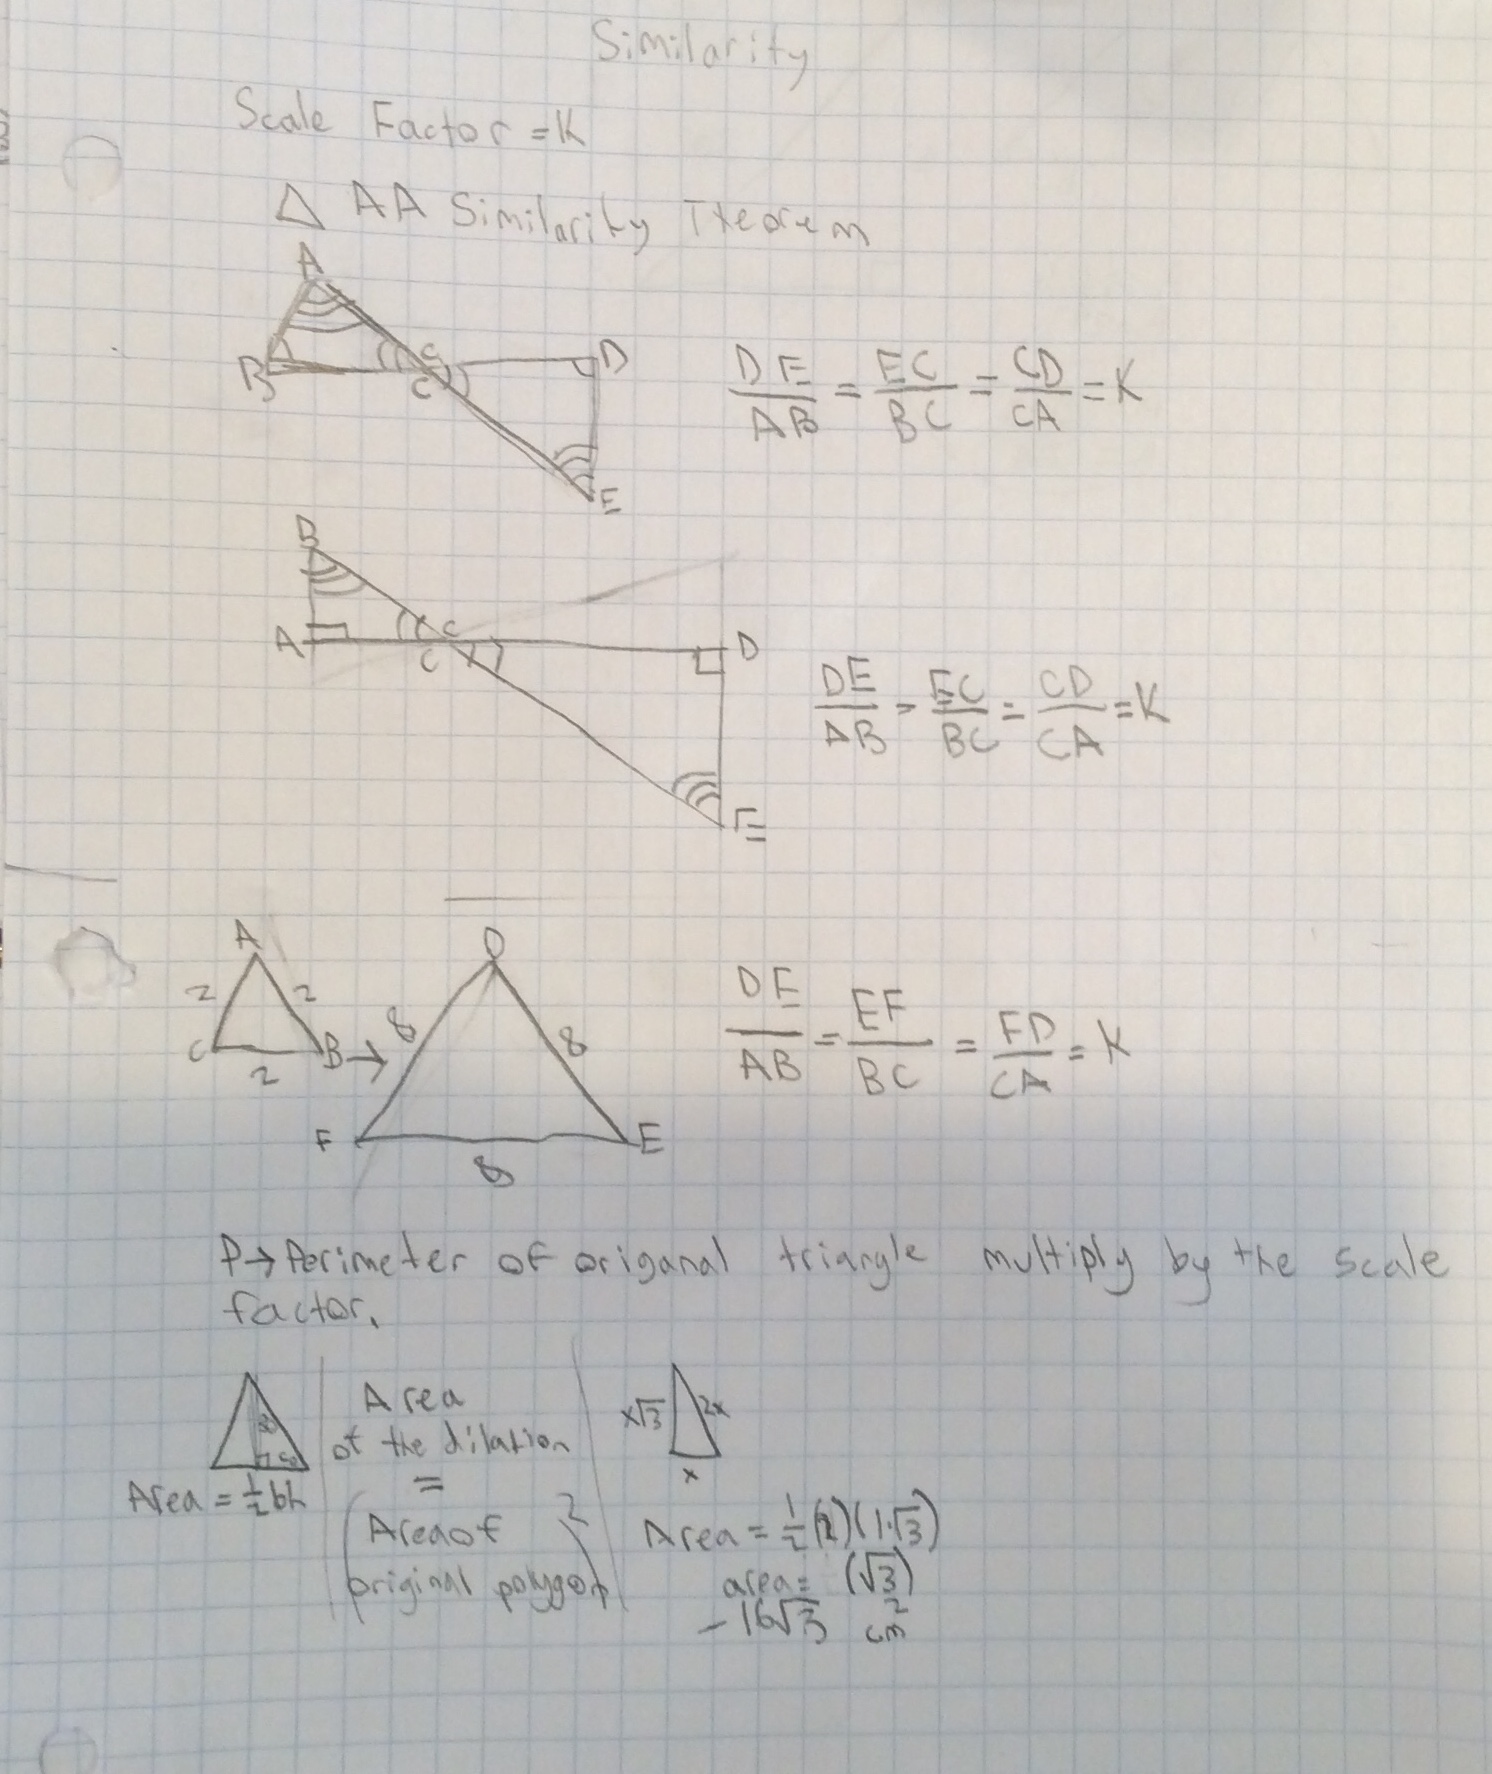 Similarity
Scale Factor = K
△ AA Similarity Theorem
A
B
C
C
D
E
DE/AB = EC/BC = CD/CA = K
B
A
C
C
D
E
DE/AB = EC/BC = CD/CA = K
A
2 2
C B →
2
D
8 8
F E
8
DE/AB = EF/BC = FD/CA = K
P → Perimeter of origanal triangle multiply by the scale
factor.
Area = 1/2 bh
Area
of the dilation
=
(Area of
original polygon)²
x√3 2x
x
Area = 1/2 (2)(1·√3)
area = (√3)
- 16√3 cm²